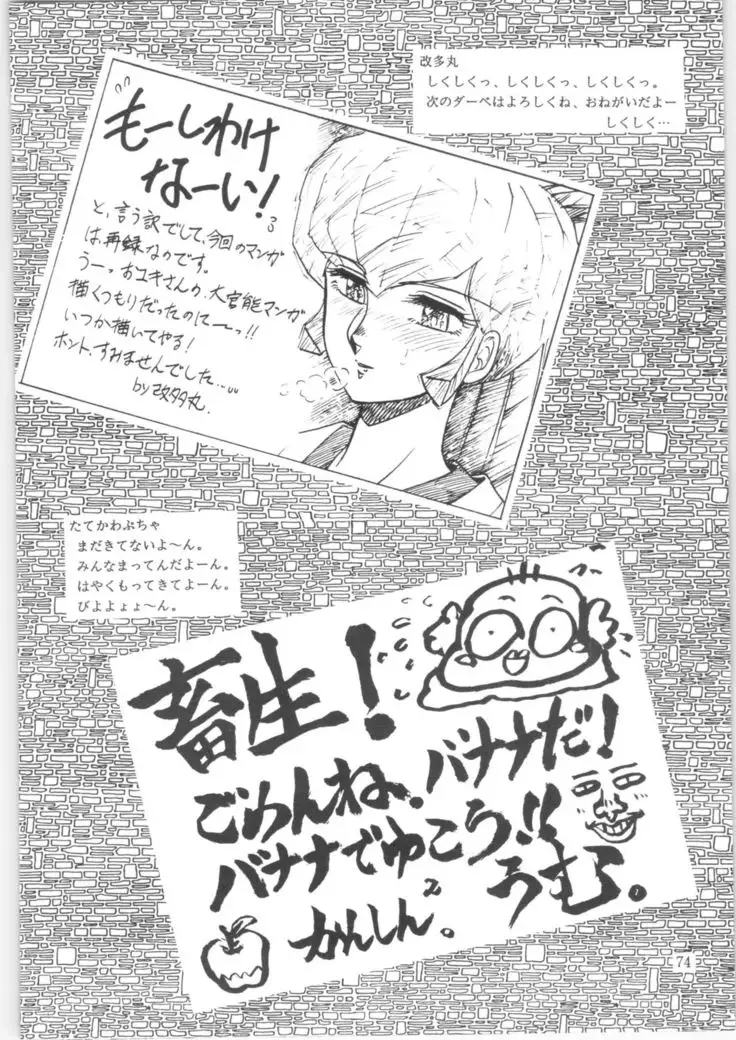 改多丸
しくしくっ、しくしくっ、しくしくっ。
次のダーペはよろしくね、おねがいだよー
しくしく…
もーしわけ
なーい!
と、言う訳でして、今回のマンガ
は再録なのです。
うーっおユキさんの、大官能マンガ
描くつもりだったのにーっ!!
いつか描いてやる!
ホント、すみませんでした…
by改多丸.
たてかわぷちゃ
まだきてないよ〜ん。
みんなまってんだよーん。
はやくもってきてよーん。
びよよょょ〜ん。
畜生!
ごめんね。バナナだ!
バナナでゆこう!!
うむ。
かんしん2。
74